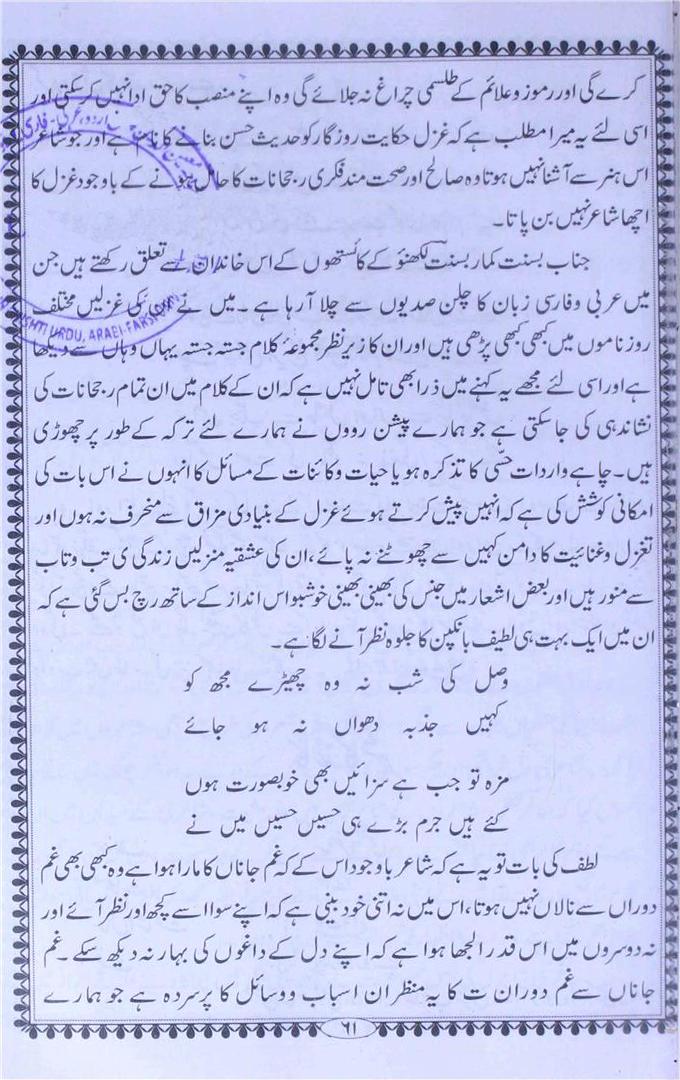 کرے گی اور رموز و علائم کے طلسمی چراغ نہ جلائے گی وہ اپنے منصب کا حق ادا نہیں کر سکتی اور
اسی لئے یہ میرا مطلب ہے کہ غزل حکایت روزگار کو حدیث حسن بنانے کا نام ہے اور جو شاعر
اس ہنر سے آشنا نہیں ہوتا وہ صالح اور صحت مند فکری رجحانات کا حامل ہونے کے باوجود غزل کا
اچھا شاعر نہیں بن پاتا۔
جناب بسنت کمار بسنت لکھنؤ کے کائستھوں کے اس خاندان سے تعلق رکھتے ہیں جن
میں عربی و فارسی زبان کا چلن صدیوں سے چلا آرہا ہے ۔ میں نے کی غزلیں مختلف
روزناموں میں کبھی کبھی پڑھی ہیں اور ان کا زیر نظر مجموعۂ کلام جستہ جستہ یہاں وہاں سے دیکھا
ہے اور اسی لئے مجھے یہ کہنے میں ذرا بھی تامل نہیں ہے کہ ان کے کلام میں ان تمام رجحانات کی
نشاندہی کی جاسکتی ہے جو ہمارے پیشن رووں نے ہمارے لئے ترکہ کے طور پر چھوڑی
ہیں۔ چاہے واردات حسّی کا تذکرہ ہو یا حیات و کائنات کے مسائل کا انہوں نے اس بات کی
امکانی کوشش کی ہے کہ انہیں پیش کرتے ہوئے غزل کے بنیادی مزاق سے منحرف نہ ہوں اور
تغزل و غنائیت کا دامن کہیں سے چھوٹنے نہ پائے، ان کی عشقیہ منزلیں زندگی ی تب و تاب
سے منور ہیں اور بعض اشعار میں جنس کی بھینی بھینی خوشبو اس انداز کے ساتھ رچ بس گئی ہے کہ
ان میں ایک بہت ہی لطیف بانکپن کا جلوہ نظر آنے لگا ہے۔
وصل کی شب نہ وہ چھیڑے مجھ کو
کہیں جذبہ دھواں نہ ہو جائے
مزہ تو جب ہے سزائیں بھی خوبصورت ہوں
کئے ہیں جرم بڑے ہی حسیں حسیں میں نے
لطف کی بات تو یہ ہے کہ شاعر باوجود اس کے کہ غم جاناں کا مارا ہوا ہے وہ کبھی بھی غم
دوراں سے نالاں نہیں ہوتا، اس میں نہ اتنی خود بینی ہے کہ اپنے سوا اسے کچھ اور نظر آئے اور
نہ دوسروں میں اس قدر الجھا ہوا ہے کہ اپنے دل کے داغوں کی بہار نہ دیکھ سکے ۔ غم
جاناں سے غم دوران ت کا یہ منظر ان اسباب و وسائل کا پرسردہ ہے جو ہمارے
۶۱
URDU, ARABI-FARSI